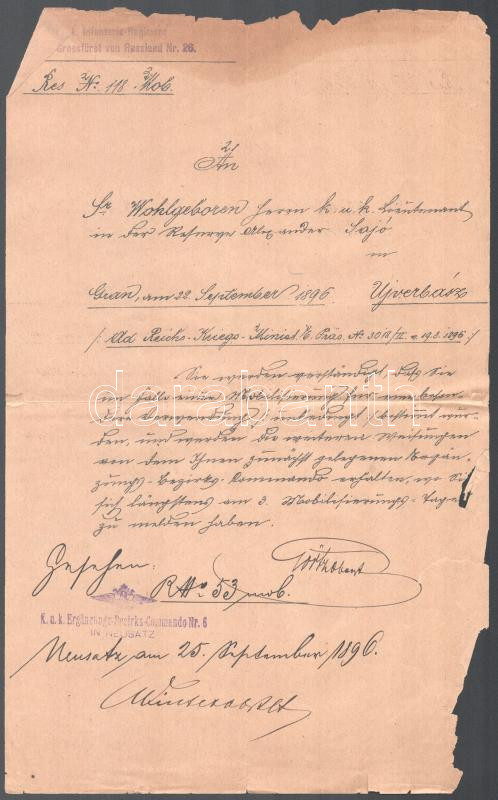 k. Infanterie-Regiment
Grossfürst von Russland Nr. 26.
Res No. 118. Mob.
An
Sr Wohlgeboren Herrn k. u. k. Lieutenant
in der Reserve Alexander Sajó
in
Gran, am 22. September 1896 Ujverbász
/: Ad Reichs-Kriegs-Minist. Präs. No 3018/II v. 19.3. 1896 :/
Sie werden verständigt, daß Sie
im Falle einer Mobilisierung für
dere Verwendung) bestimmt wur-
den, und werden die weiteren Weisungen
von dem Ihnen zunächst gelegenen Ergän-
zungs-Bezirks-Commando erhalten, wo Sie
sich längstens am 3. Mobilisierungs-Tage
zu melden haben.
Gesehen: Oberst
R No 53 mob.
K. u. k. Ergänzungs-Bezirks-Commando Nr. 6
IN NEUSATZ
Neusatz am 25. September 1896.
darabanth